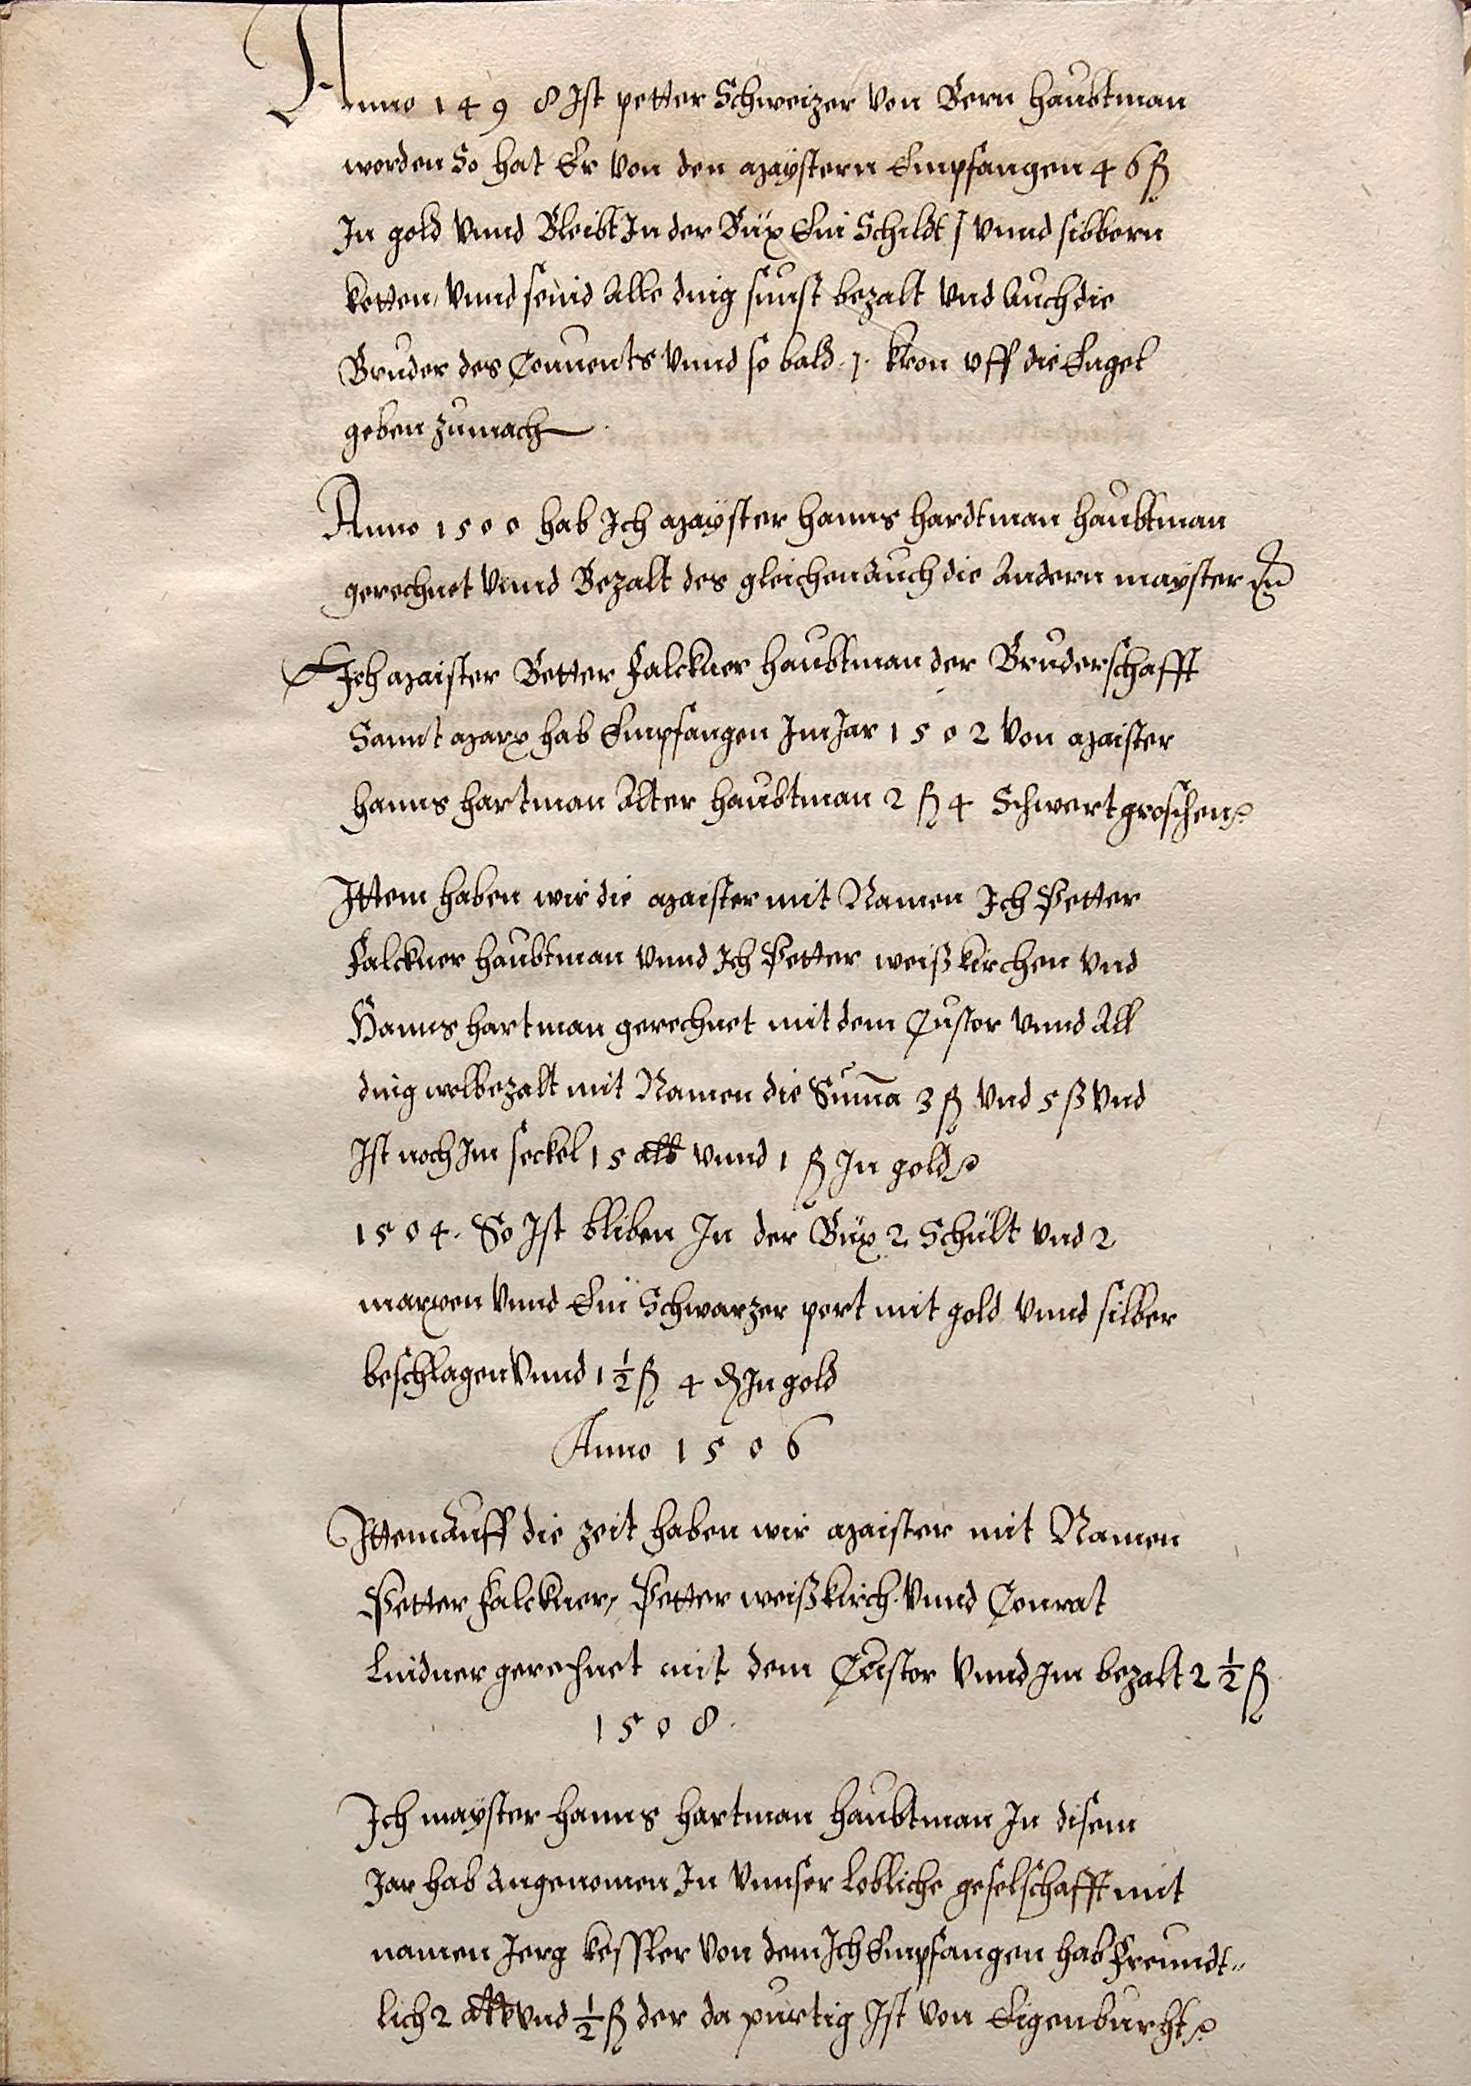 Anno 1498 Ist petter Schweizer von Bern haubtman
worden So hat Er von den Maystern Empfangen 4 6 fl
In gold vnnd Bleibt In der Büx Ein Schildt / vnnd silbern
ketten, vnnd seind Alle ding sunst bezalt vnd Auch die
Bruder des Conuents vnnd so bald .1. kron vff die Engel
geben zumach
Anno 1500 hab Ich Mayster Hanns hardtman haubtman
gerechnet vnnd Bezalt des gleichen Auch die Andern mayster
Ich Maister Better Falckner haubtman der Bruderschafft
Sannt Marx hab Empfangen Im Jar 1502 von Maister
Hanns hartman Alter haubtman 2 fl 4 Schwertgroschen
Ittem haben wir die Maister mit Namen Ich Petter
Falckner haubtman vnnd Ich Petter weißkirchen vnd
Hanns hartman gerechnet mit dem Custor vnnd All
ding wolbezalt mit Namen die Suma 3 fl vnd 5 ß vnd
Ist noch Im seckel 15 alb vnnd 1 fl In gold
1504. So Ist bliben In der Büx 2 Schült vnd 2
marxen vnnd Ein Schwarzer port mit gold vnnd silber
beschlagen vnnd 1 ½ fl 4 ₰ In gold
Anno 1506
Ittem Auff die zeit haben wir Maister mit Namen
Petter Falckner, Petter weißkirch. vnnd Conrat
Lindner gerechnet mit dem Custor vnnd Im bezalt 2 ½ fl
1508.
Ich mayster Hanns Hartman haubtman In disem
Jar hab Angenomen In vnnser Lobliche geselschafft mit
namen Jerg kessler von dem Ich Empfangen hab Freundt„
lich 2 alb vnd ½ fl der da purtig Ist von Eigenburcht